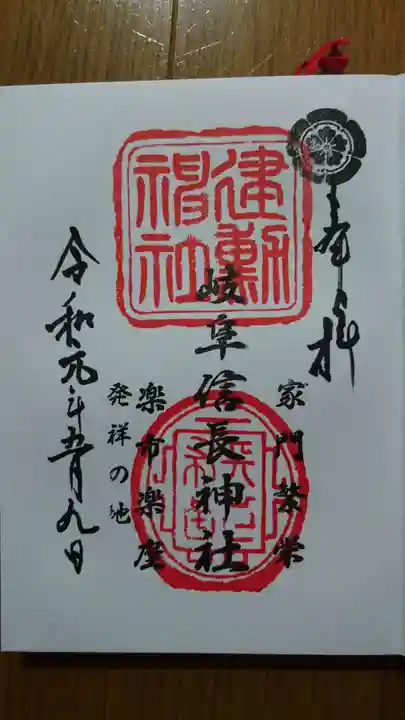 奉拝
家門繁栄
岐阜信長神社
建勲神社
楽市楽座
発祥の地
令和元年五月九日